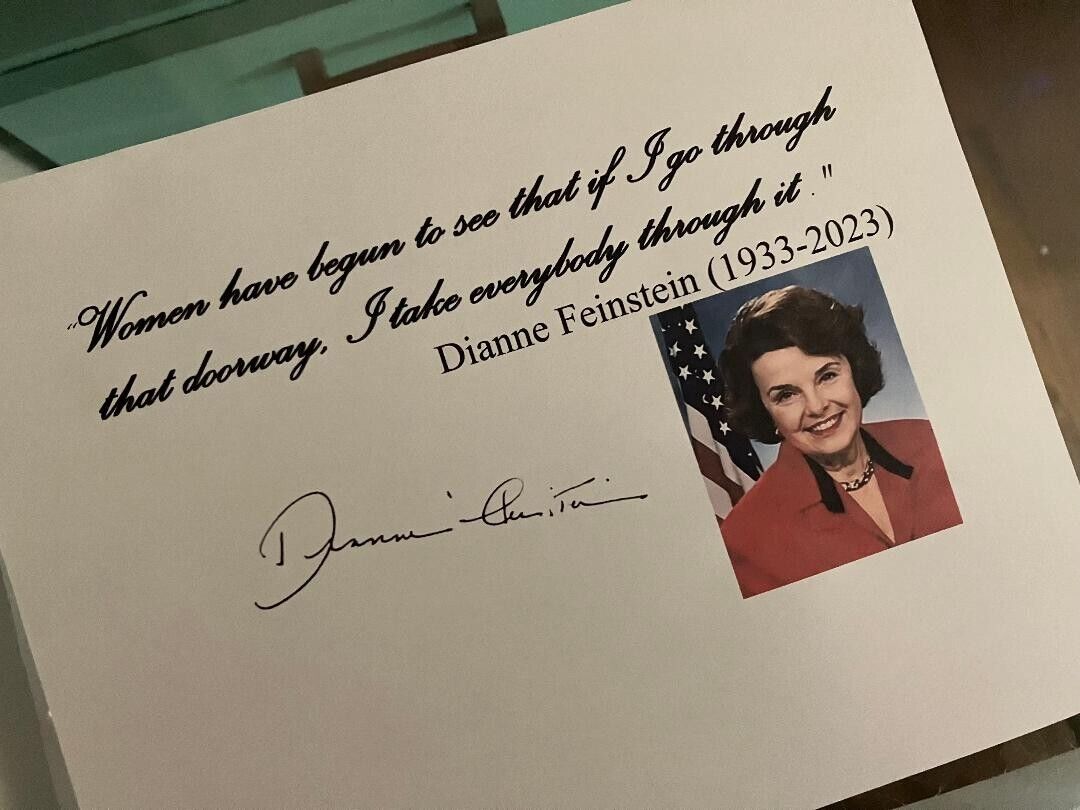 "Women have begun to see that if I go through
that doorway, I take everybody through it ."
Dianne Feinstein (1933-2023)
Dianne Feinstein